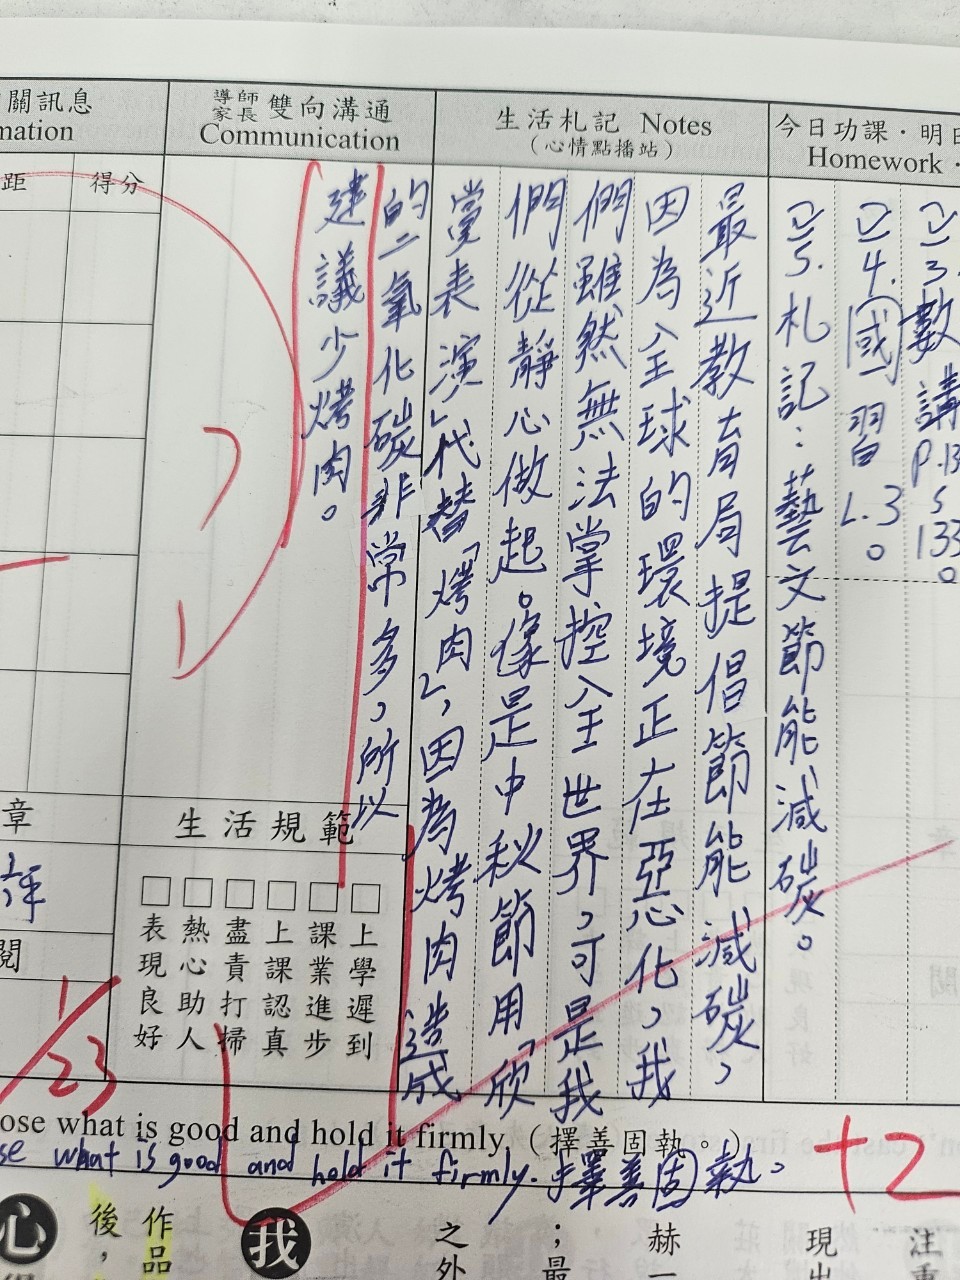 關訊息
mation
導師
家長
雙向溝通
Communication
生活札記 Notes
(心情點播站)
今日功課·明日
Homework·
距
得分
㈠3.數講P.13
S
133。
㈠4.國習L.3。
㈠5.札記:藝文節能減碳。
最近教育局提倡節能減碳,
因為全球的環境正在惡化,我
們雖然無法掌控全世界,可是我
們從靜心做起。像是中秋節用「欣
賞表演」代替「烤肉」,因為烤肉造成
的二氧化碳非常多,所以
建議少烤肉。
章
評
閱
1/23
生活規範
□上學遲到
□課業進步
□上課認真
□盡責打掃
□熱心助人
□表現良好
ose what is good and hold it firmly.(擇善固執。)
se what is good and hold it firmly.擇善固執。
+2
心
後,
作品
我
之外
;最
赫一
現出
注重